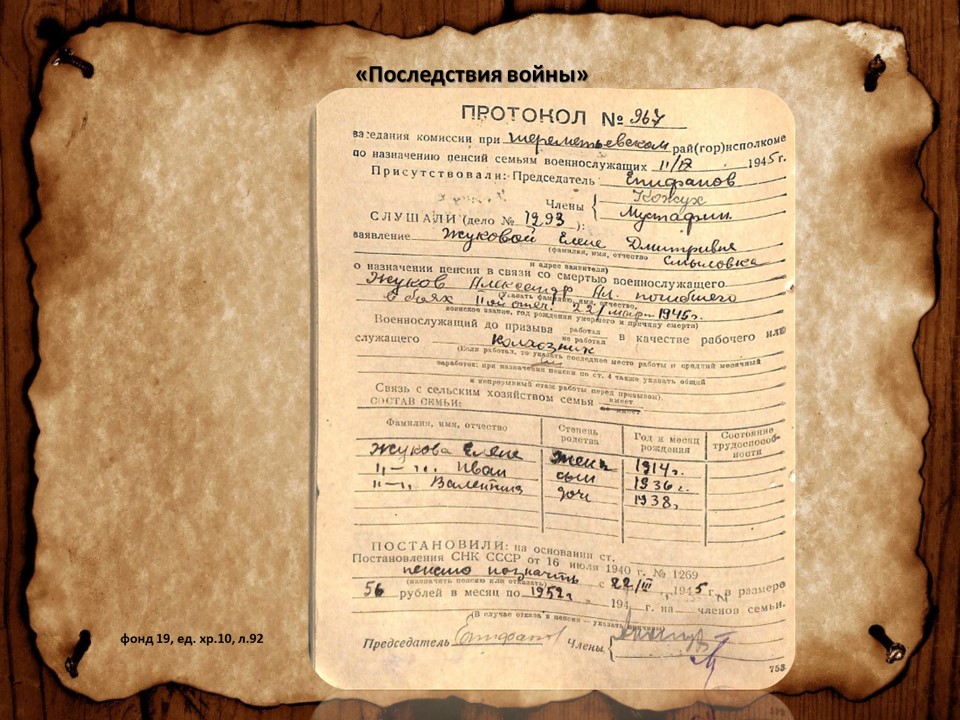 «Последствия войны»
ПРОТОКОЛ № 967
заседания комиссии при Шереметьевском рай(гор)исполкоме
по назначению пенсий семьям военнослужащих 11/IV 1945 г.
Присутствовали: Председатель Епифанов
Кожух
Члены
Мустафин
СЛУШАЛИ (дело № 1293 ):
заявление Жуковой Елене Дмитривне
(фамилия, имя, отчество Смыловка
и адрес заявителя)
о назначении пенсии в связи со смертью военнослужащего
Жуков Александр Ал. погибшего
(указать фамилию, имя, отчество,
в боях 22/март 1945 г.
воинское звание, год рождения умершего и причину смерти)
Военнослужащий до призыва работал
не работал в качестве рабочего или
служащего колхозник
(Если работал, то указать последнее место работы и средний месячный
заработок; при назначении пенсии по ст. 4 также указать общий
и непрерывный стаж работы перед призывом).
Связь с сельским хозяйством семья имеет
не имеет
СОСТАВ СЕМЬИ:
Фамилия, имя, отчество Степень родства Год и месяц рождения Состояние трудоспособности
Жукова Елене жена 1914 г.
"—" Иван сын 1936 г.
"—" Валентина дочь 1938,
ПОСТАНОВИЛИ: на основании ст.
Постановления СНК СССР от 16 июля 1940 г. № 1269
пенсию назначить с 22/III, 1945 г. в размере
(назначить пенсию или отказать)
56 рублей в месяц по 1952 г. 194 г. на членов семьи.
(В случае отказа в пенсии — указать причины)
Председатель Епифанов Члены
753
фонд 19, ед. хр.10, л.92